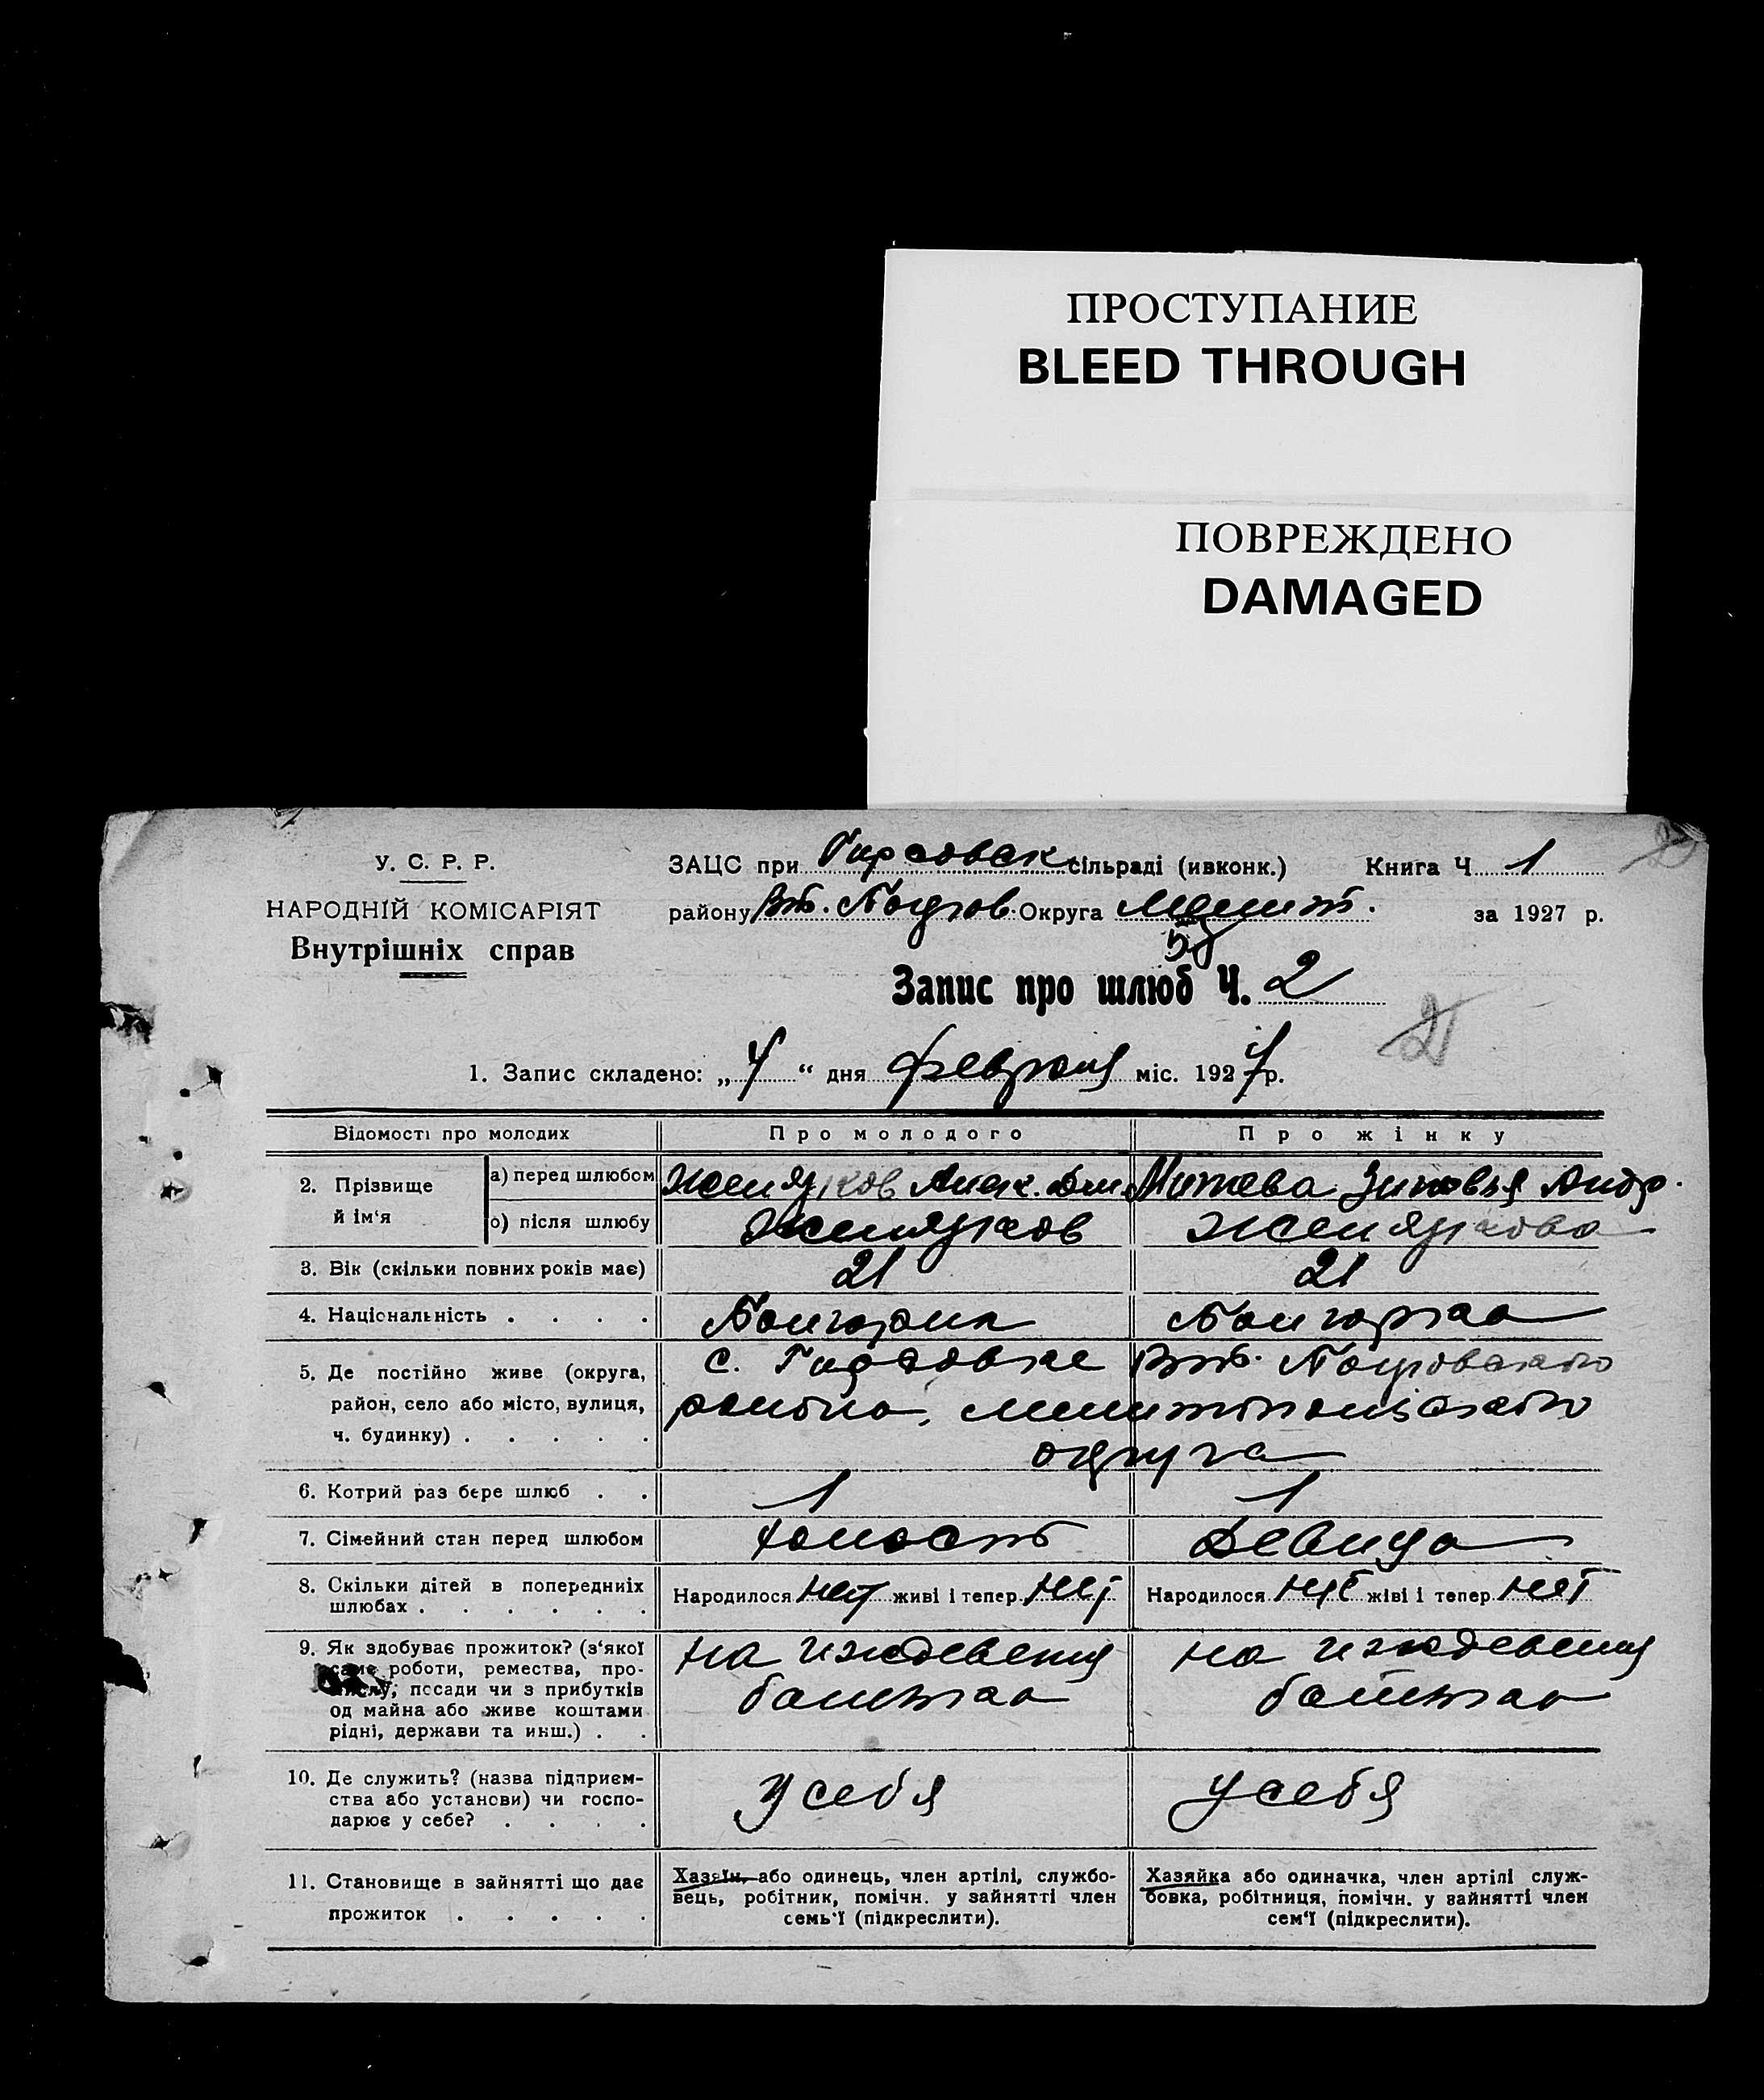 ПРОСТУПАНИЕ
BLEED THROUGH
ПОВРЕЖДЕНО
DAMAGED
У. С. Р. Р.
НАРОДНІЙ КОМІСАРІЯТ
Внутрішніх справ
ЗАЦС при Гирсовск сільраді (ивконк.) Книга Ч 1
району Округа Мелит. за 1927 р.
Запис про шлюб Ч. 2
1. Запис складено: „ “ дня февраля міс. 1927 р.
Відомості про молодих Про молодого Про жінку
2. Прізвище й ім‘я
а) перед шлюбом Желязков Алек. Дм. Митева Зиновья Андр.
о) після шлюбу Желязков Желязкова
3. Вік (скільки повних років має) 21 21
4. Національність . . . . Болгарин Болгарка
5. Де постійно живе (округа, с. Гирсовке
район, село або місто, вулиця, района, мелитопольского
ч. будинку) . . . . . округа
6. Котрий раз бере шлюб . . 1 1
7. Сімейний стан перед шлюбом холост Девица
8. Скільки дітей в попередниіх Народилося нет живі і тепер нет Народилося нет жіві і тепер нет
шлюбах . . . . . .
9. Як здобуває прожиток? (з‘якої на иждевении на иждевении
саме роботи, ремества, про-
мислу, посади чи з прибутків батька батька
од майна або живе коштами
рідні, держави та инш.) . .
10. Де служить? (назва підприєм-
ства або установи) чи госпо- у себя у себя
дарює у себе? . . . .
11. Становище в зайнятті що дає
прожиток . . . . .
Хазяїн, або одинець, член артілі, службо-
вець, робітник, помічн. у зайнятті член
семь‘ї (підкреслити).
Хазяйка або одиначка, член артілі служ-
бовка, робітниця, помічн. у зайнятті член
сем‘ї (підкреслити).